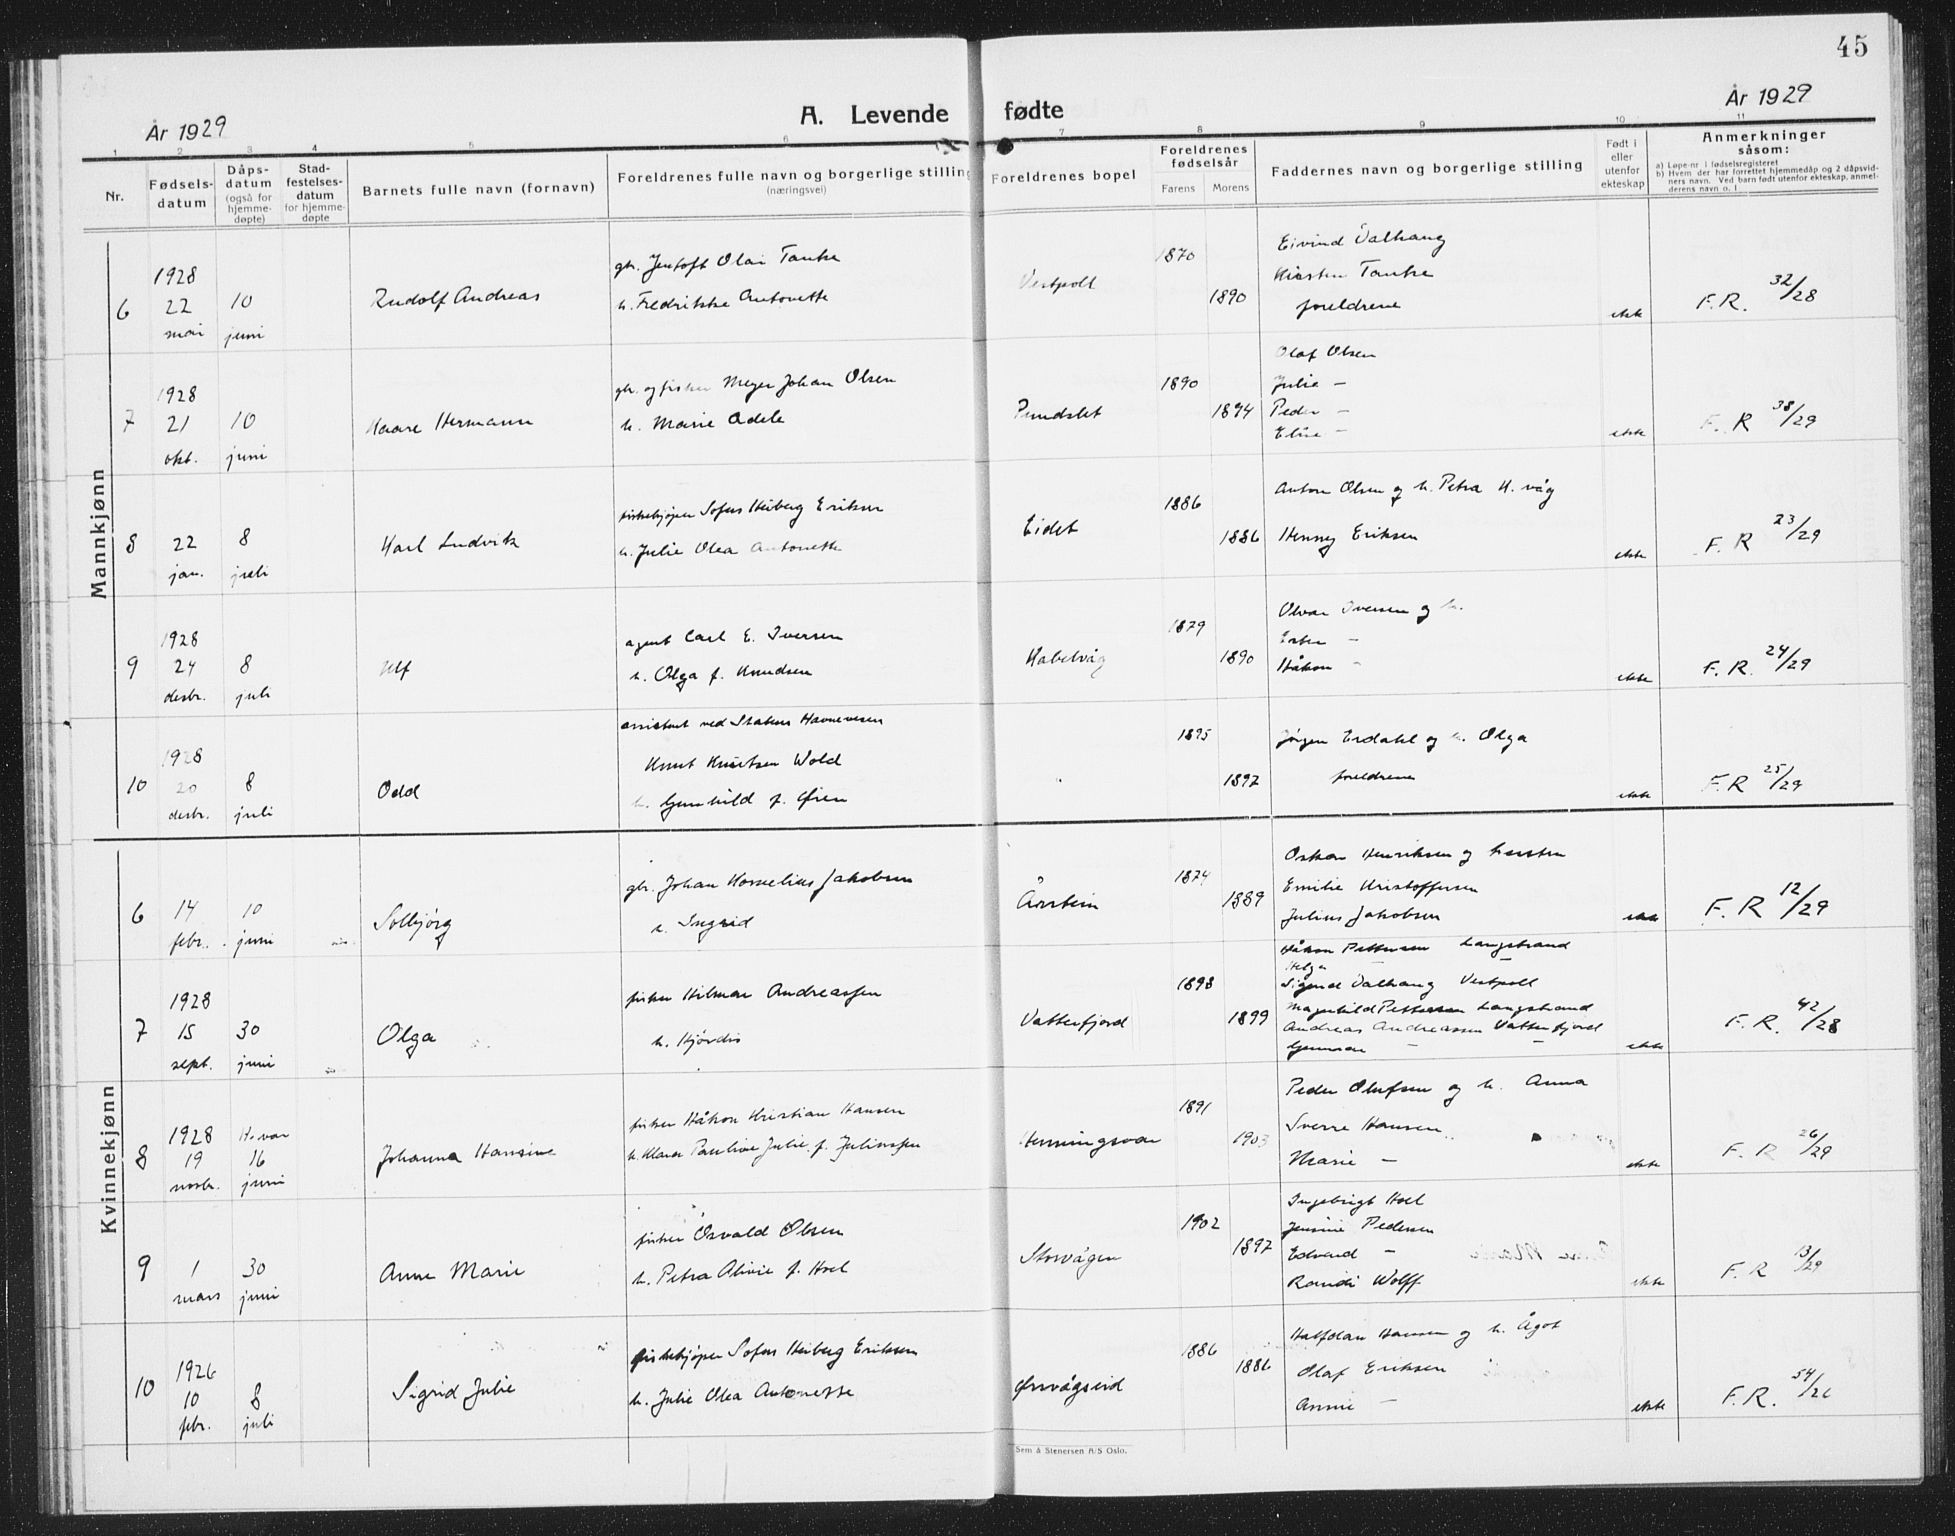 45
År 1929
A. Levende fødte
År 1929
1 2 3 4 5 6 7 8 9 10 11
Nr.
Fødsels-
datum
Dåps-
datum
(også for
hjemme-
døpte)
Stad-
festelses-
datum
for hjemme-
døpte
Barnets fulle navn (fornavn)
Foreldrenes fulle navn og borgerlige stilling
(næringsvei)
Foreldrenes bopel
Foreldrenes
fødselsår
Farens Morens
Faddernes navn og borgerlige stilling
Født i
eller
utenfor
ekteskap
Anmerkninger
såsom:
a) Løpe-nr. i fødselsregisteret
b) Hvem der har forrettet hjemmedåp og 2 dåpsvid-
ners navn. Ved barn født utenfor ekteskap, anmel-
derens navn o. l
Mannkjønn
6
1928
22
mai
10
juni
Rudolf Andreas
gbr. Jentoft Olai Tanke
h. Fredrikke Antonette
Vestpoll
1870
1890
Eivind Valhaug
Kirsten Tanke
foreldrene
ekte
F. R. 32/28
7
1928
21
okt.
10
juni
Kaare Hermann
gbr. og fisker Meyer Johan Olsen
h. Marie Adele
Pundslet
1890
1894
Olaf Olsen
Julie —
Peder —
Elise —
ekte
F. R 38/29
8
22
jan.
8
juli
Karl Ludvik
fiskekjøper Sofus Heiberg Eriksen
h. Julie Olea Antonette
Eidet
1886
1886
Anton Olsen og h. Petra K. våg
Henny Eriksen
ekte
F. R 23/29
9
1928
24
desbr.
8
juli
Ulf
agent Carl E. Iversen
h. Olga f. Knudsen
Kabelvåg
1879
1890
Olvar Iversen og h.
Ester —
Håkon —
ekte
F. R. 24/29
10
1928
20
desbr.
8
juli
Odd
assistent ved Statens Havnevesen
Knut Knutsen Wold
h. Gunhild f. Øien
1895
1897
Jørgen Erdahl og h. Olga
foreldrene
ekte
F. R 25/29
Kvinnekjønn
6
14
febr.
10
juni
Solbjørg
gbr. Johan Kornelius Jakobsen
h. Ingrid
Årstein
1874
1889
Oskar Henriksen og
Emilie Kristoffersen
Julius Jakobsen
ekte
F. R 12/29
7
1928
15
sept.
30
juni
Olga
fisker Hilmar Andreassen
h. Hjørdis
Vatterfjord
1898
1899
Håkon Pettersen Langstrand
Helga —
Signe Valhaug Vestpoll
Magnhild Pettersen Langstrand
Andreas Andreassen Vatterfjord
Gunnar — —
ekte
F. R. 42/28
8
1928
19
novbr.
H. vær
16
juni
Johanna Hansine
fisker Håkon Kristian Hansen
h. Klara Pauline Julie f. Juliussen
Henningsvær
1891
1903
Peder Olufsen og h. Anna
Sverre Hansen
Marie —
ekte
F. R 26/29
9
1
mars
30
juni
Anne Marie
fisker Osvald Olsen
h. Petra Olivie f. Hoel
Storvågen
1902
1897
Ingebrigt Hoel
Jensine Pedersen
Edvard —
Randi Wolff
ekte
F. R 13/29
10
1926
10
febr.
8
juli
Sigrid Julie
fiskekjøper Sofus Heiberg Eriksen
h. Julie Olea Antonette
Ørsvågseid
1886
1886
Halfdan Hansen og h. Ågot
Olaf Eriksen
Annie —
ekte
F. R. 54/26
Sem & Stenersen A/S Oslo.